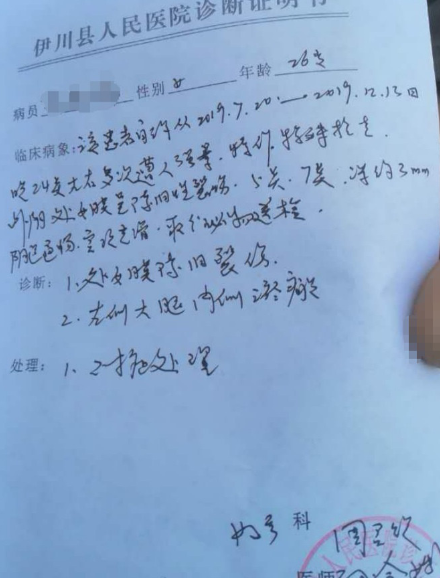 伊川县人民医院诊断证明书
病员 性别 女 年龄 26岁
临床病象:该患者自诉从2019.7.20.—2019.12.13日
晚24点左右多次遭人强暴.特作.特殊检查
外阴处女膜呈陈旧性裂伤.5点.7点.深约3mm
阴道通畅.宫颈光滑.取分泌物送检.
诊断:1.处女膜陈旧裂伤.
2.左侧大腿内侧
处理:1.处理
妇产 科
医师